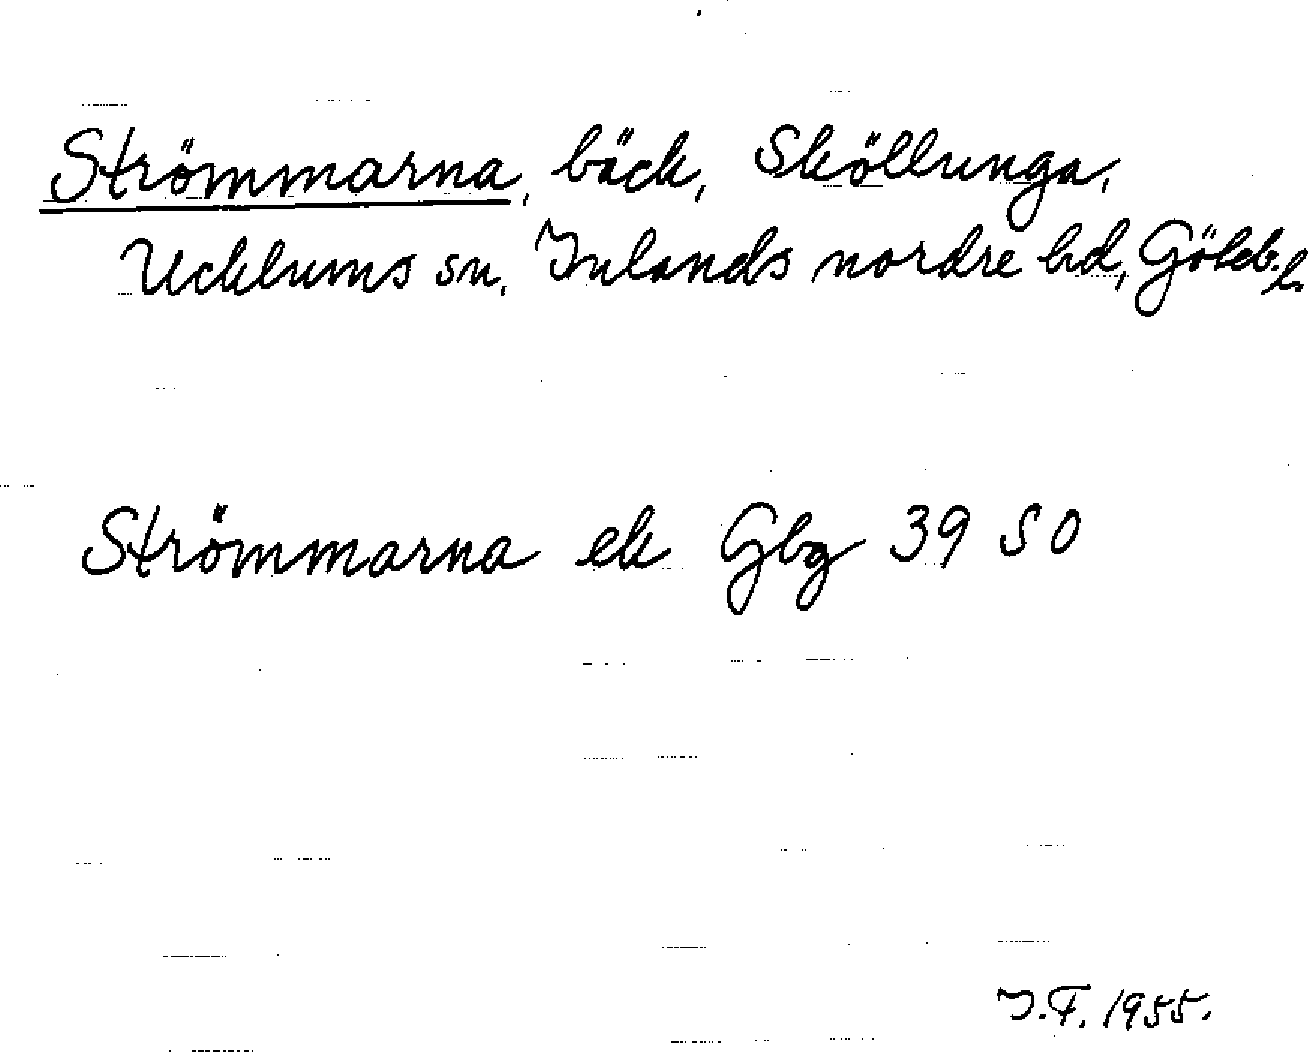 Strömmarna, bäck, Sköllunga,
Ucklums sn, Inlands nordre hd, Göteb. l.
Strömmarna ek Gbg 39 SO
I.F. 1955.